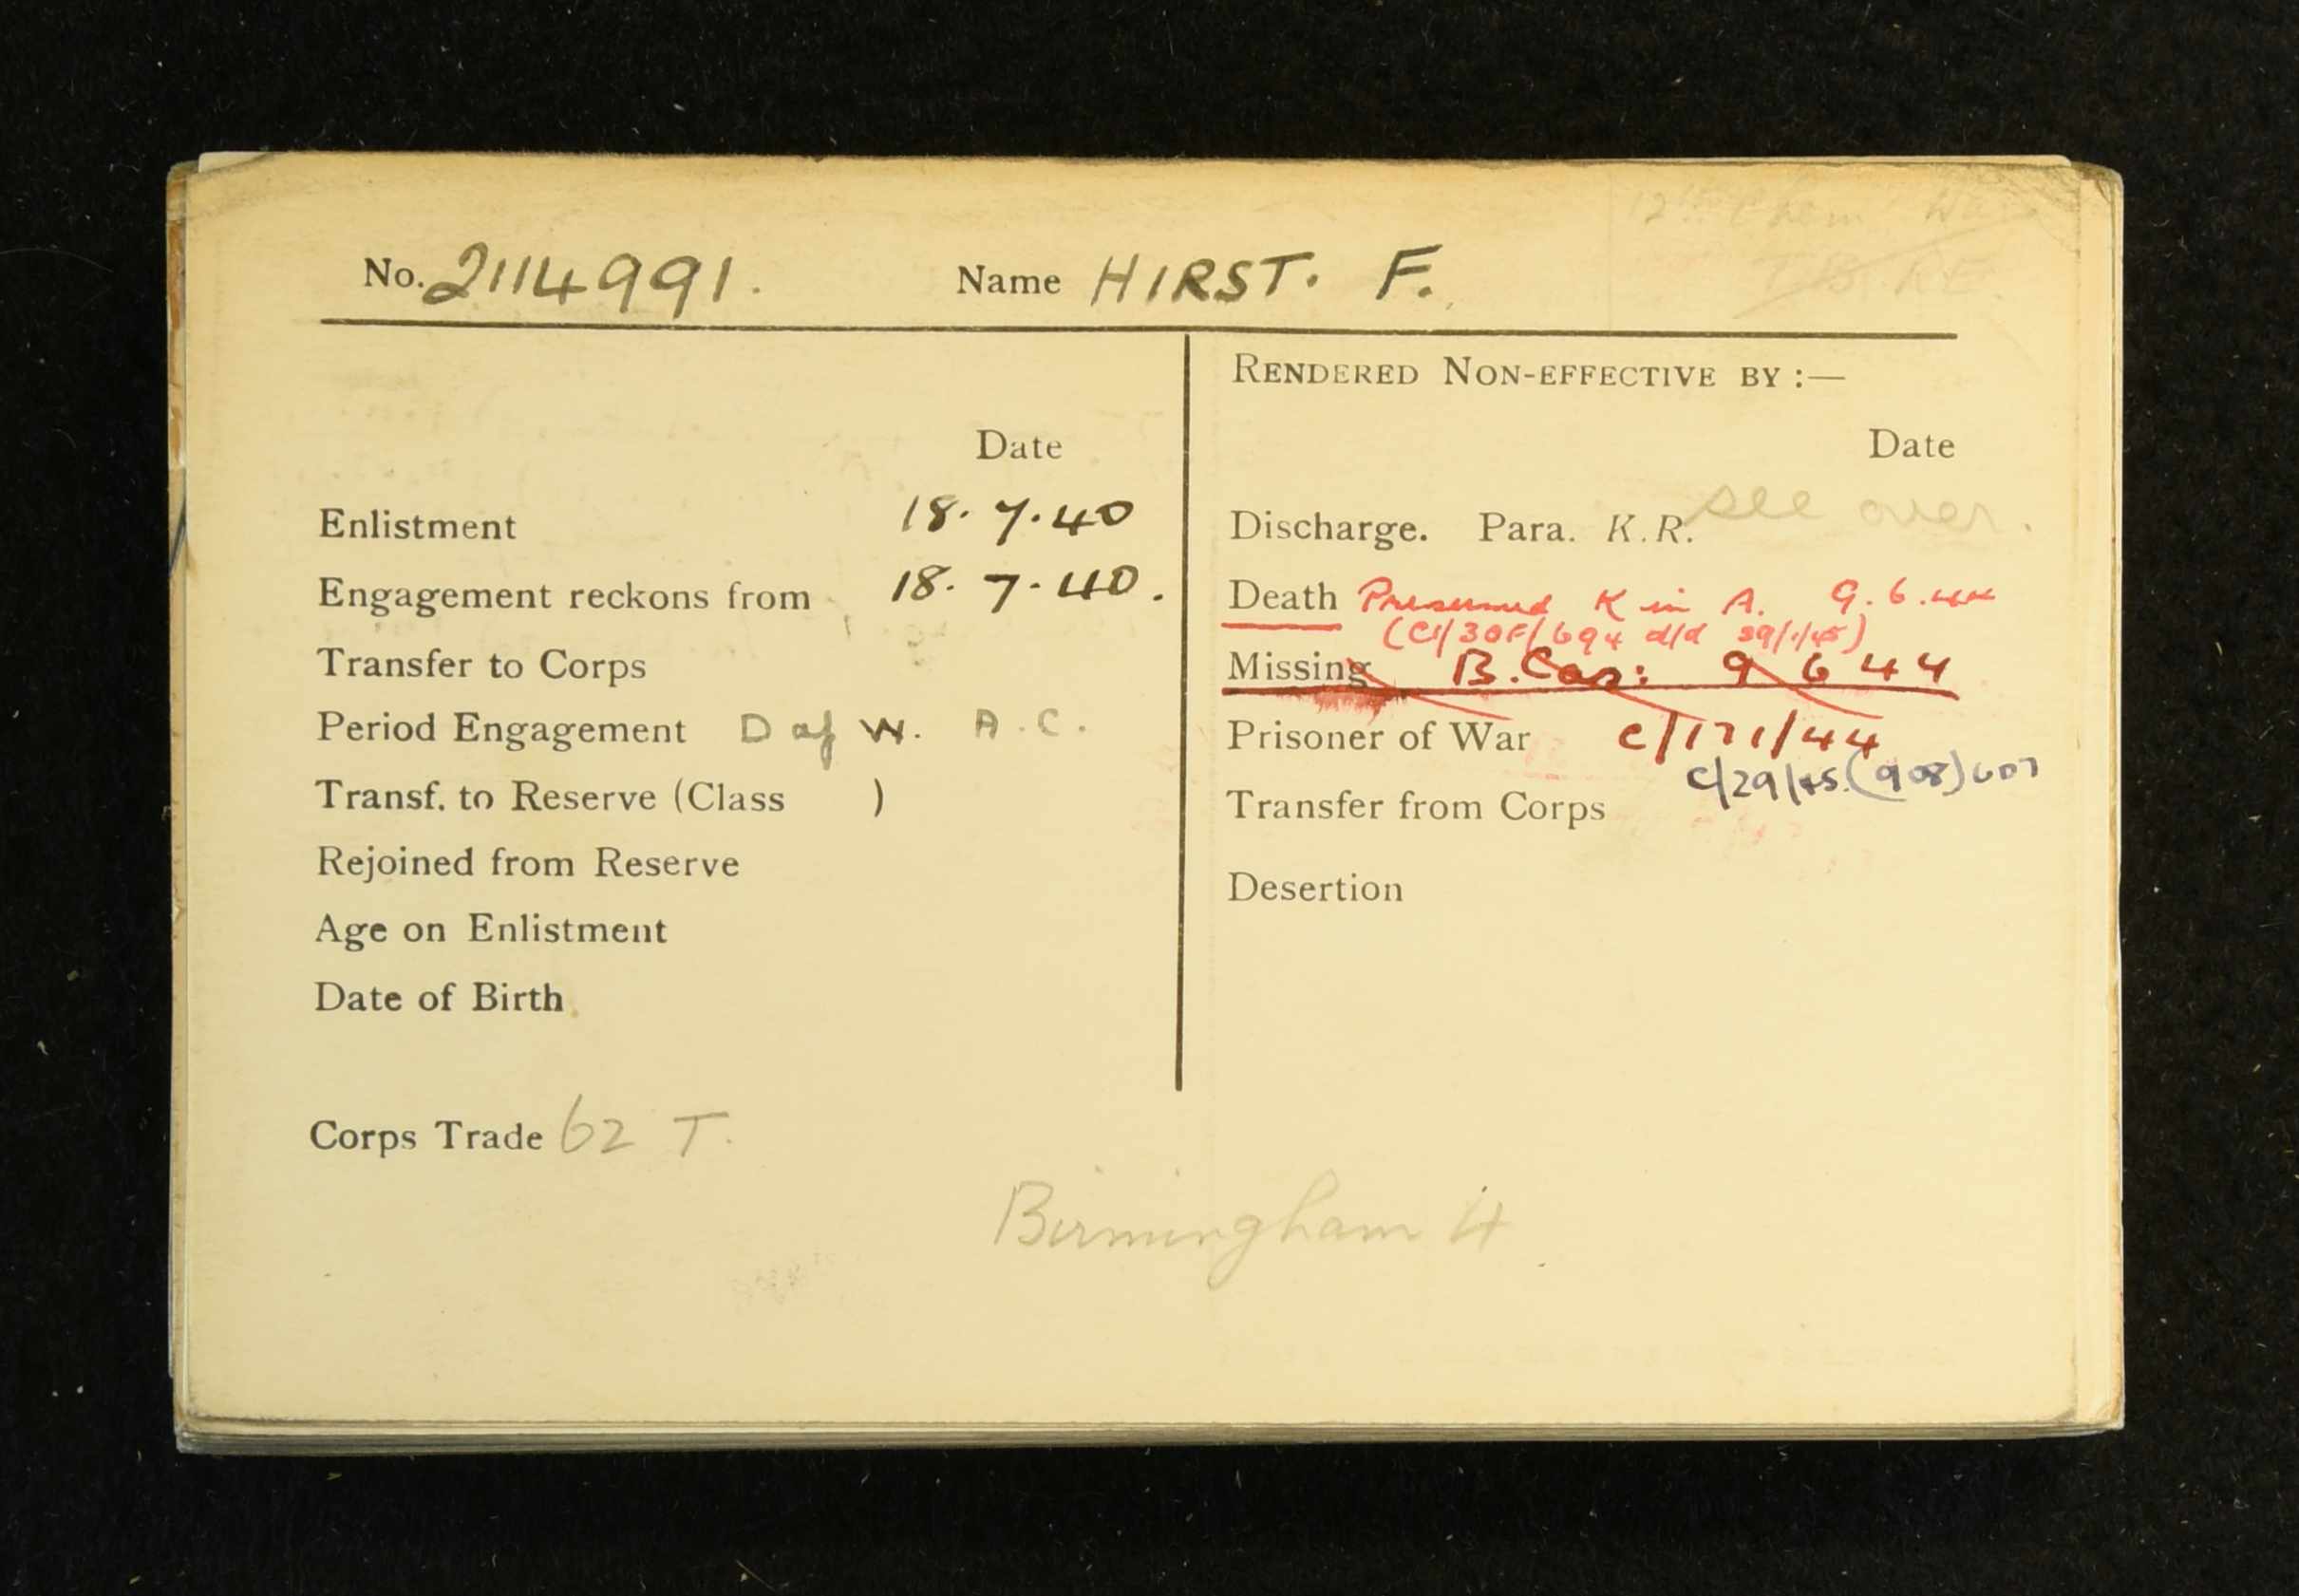 12th Chem
No. 2114991. Name HIRST. F.
RENDERED NON-EFFECTIVE BY :—
Date
Date
Enlistment 18.7.40
Discharge. Para. K.R. see over.
Engagement reckons from 18.7.40.
Death Presumed K in A. 9.6.44
Transfer to Corps
Missing B.Cas: 9 6 44
Period Engagement D of W. A.C.
Prisoner of War C/171/44
C/29/45.(908)
Transf. to Reserve (Class )
Transfer from Corps
Rejoined from Reserve
Desertion
Age on Enlistment
Date of Birth
Corps Trade 62 T.
Birmingham 4